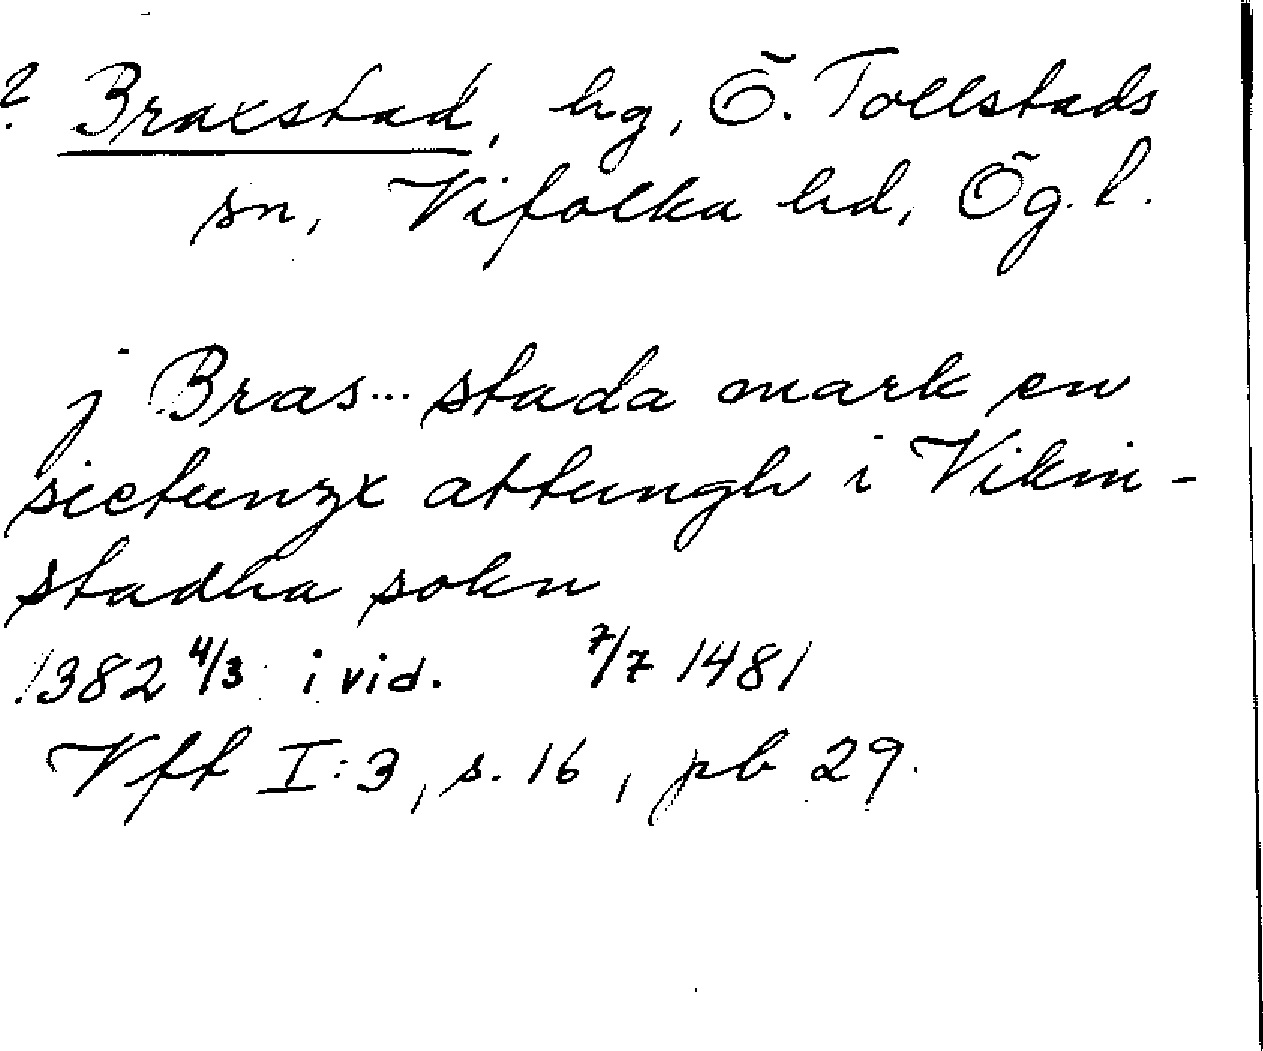 ? Braxstad, hg, Ö. Tollstads
sn, Vifolka hd, Ög. l.
j Bras... stada mark en
sietungx attungh i Vikin-
stadha sokn
1382 4/3 i vid. 7/7 1481
Vff I:3, s. 16, pb 29.